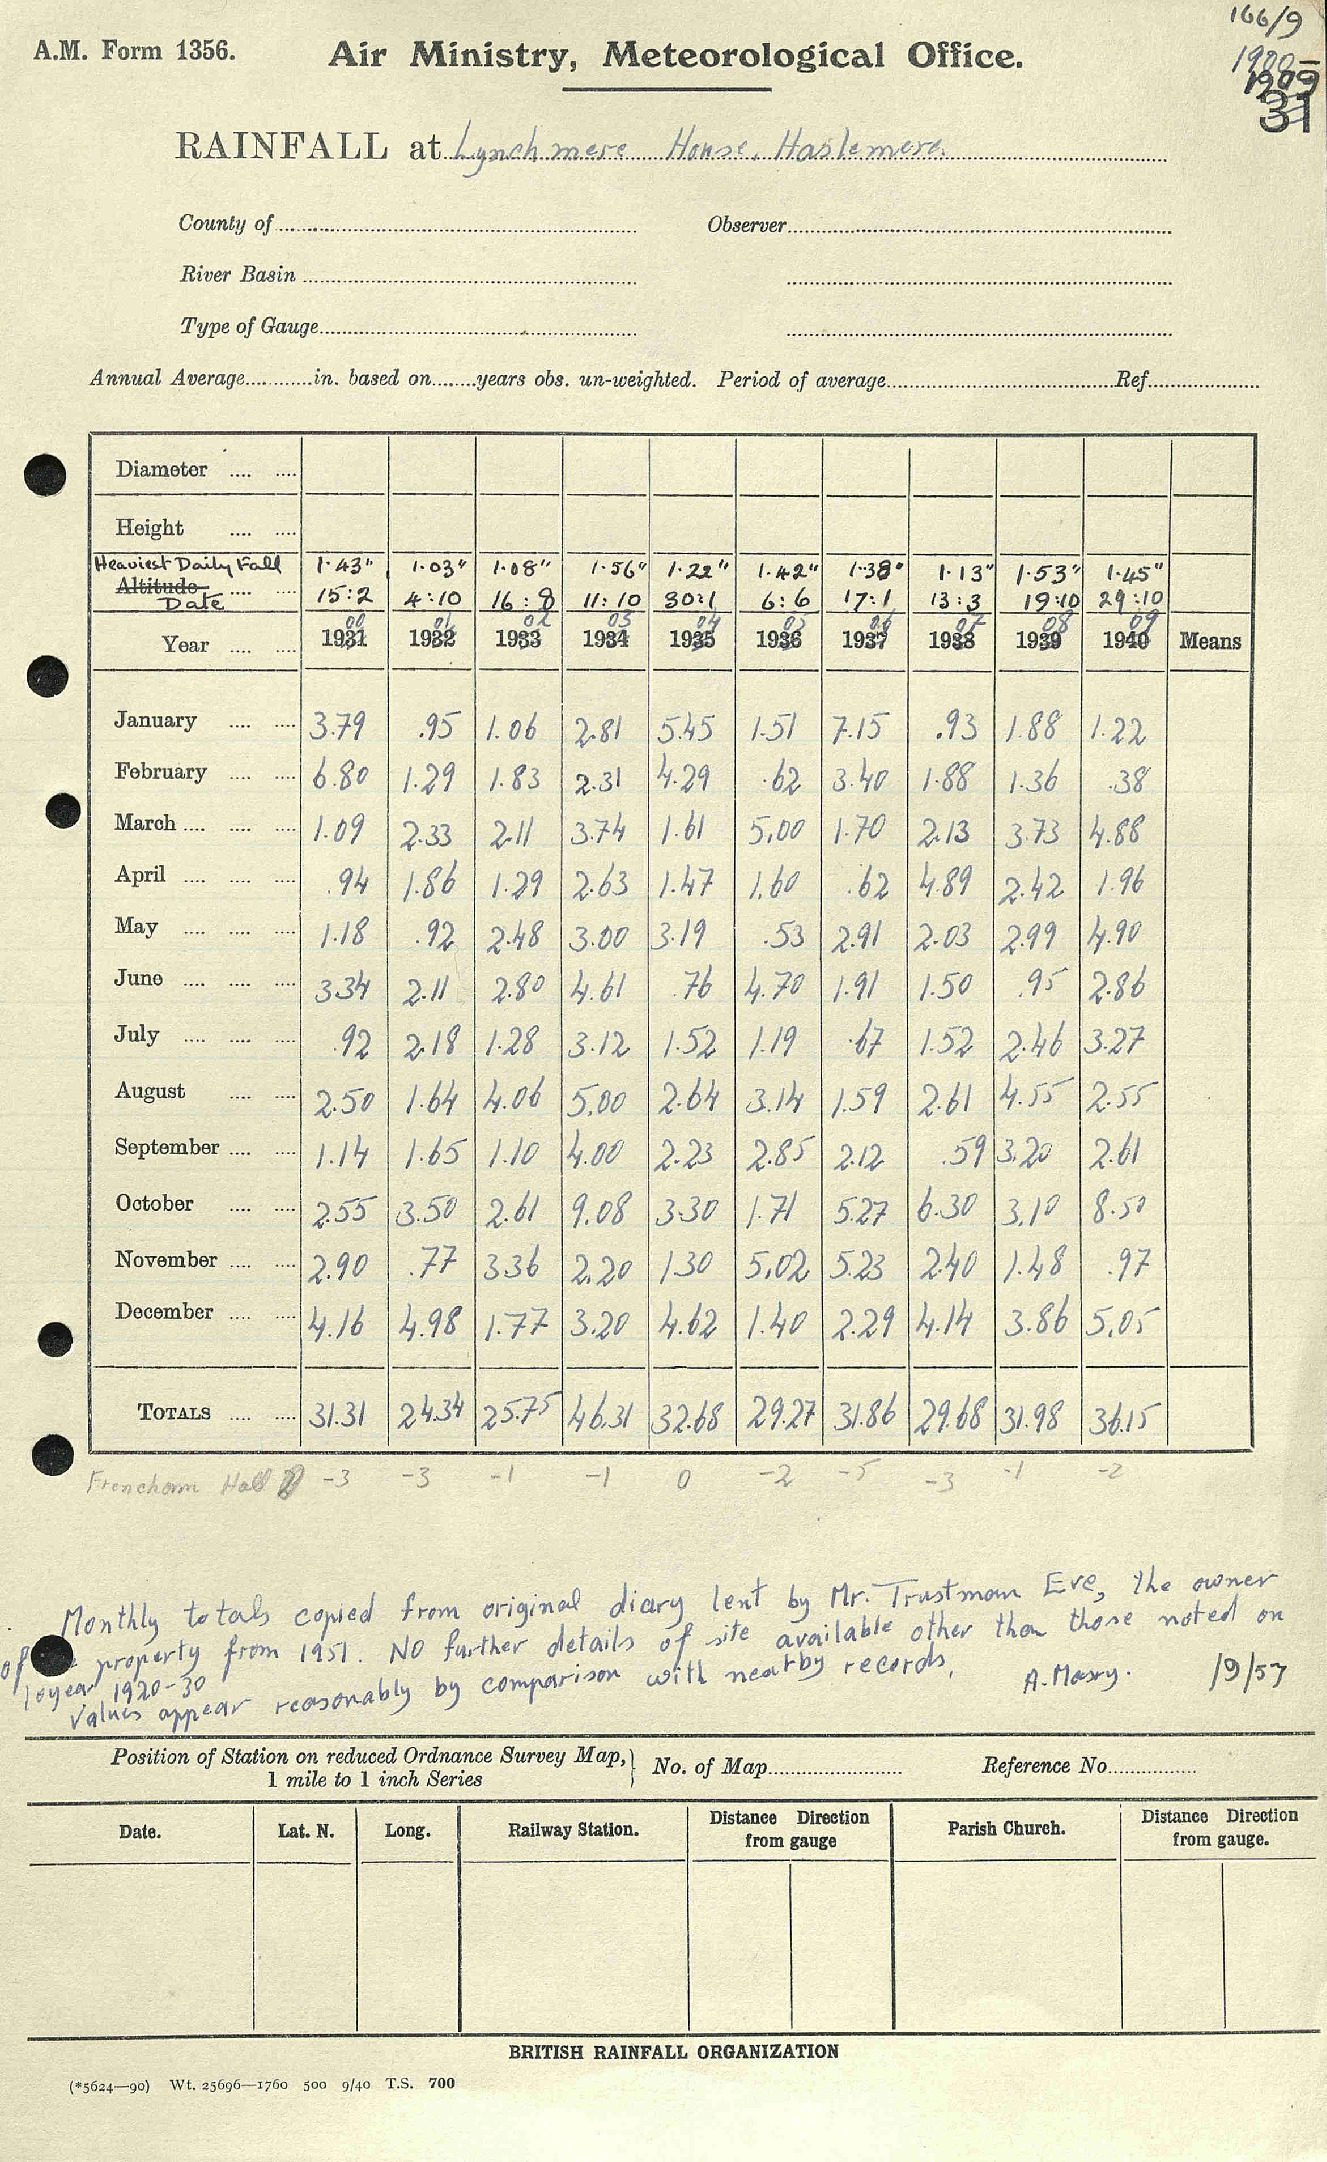 166/9
A.M. Form 1356.
Air Ministry, Meteorological Office.
1900-
1909
31
RAINFALL at Lynchmere House, Haslemere
County of
Observer
River Basin
Type of Gauge
Annual Average in. based on years obs. un-weighted. Period of average Ref.
Diameter
Height
Heaviest Daily Fall 1.43" 1.03" 1.08" 1.56" 1.22" 1.42" 1.38" 1.13" 1.53" 1.45"
Altitude
Date 15:2 4:10 16:8 11:10 30:1 6:6 17:1 13:3 19:10 29:10
00 01 02 03 04 05 06 07 08 09
Year 1931 1932 1933 1934 1935 1936 1937 1938 1939 1940 Means
January 3.79 .95 1.06 2.81 5.45 1.51 7.15 .93 1.88 1.22
February 6.80 1.29 1.83 2.31 4.29 .62 3.40 1.88 1.36 .38
March 1.09 2.33 2.11 3.74 1.61 5.00 1.70 2.13 3.73 4.88
April .94 1.86 1.29 2.63 1.47 1.60 .62 4.89 2.42 1.96
May 1.18 .92 2.48 3.00 3.19 .53 2.91 2.03 2.99 4.90
June 3.34 2.11 2.80 4.61 .76 4.70 1.91 1.50 .95 2.86
July .92 2.18 1.28 3.12 1.52 1.19 .67 1.52 2.46 3.27
August 2.50 1.64 4.06 5.00 2.64 3.14 1.59 2.61 4.55 2.55
September 1.14 1.65 1.10 4.00 2.23 2.85 2.12 .59 3.20 2.61
October 2.55 3.50 2.61 9.08 3.30 1.71 5.27 6.30 3.10 8.50
November 2.90 .77 3.36 2.20 1.30 5.02 5.23 2.40 1.48 .97
December 4.16 4.98 1.77 3.20 4.62 1.40 2.29 4.14 3.86 5.05
TOTALS 31.31 24.34 25.75 46.31 32.68 29.27 31.86 29.68 31.98 36.15
Frencham Hall -3 -3 -1 -1 0 -2 -5 -3 -1 -2
Monthly totals copied from original diary lent by Mr. Trustman Eve, the owner
of property from 1951. No further details of site available other than those noted on
10 year 1920-30
Values appear reasonably by comparison with nearby records. A. Maxy. /9/57
Position of Station on reduced Ordnance Survey Map, No. of Map Reference No.
1 mile to 1 inch Series
Date. Lat. N. Long. Railway Station. Distance Direction from gauge Parish Church. Distance Direction from gauge.
BRITISH RAINFALL ORGANIZATION
(*5624—90) Wt. 25696—1760 500 9/40 T.S. 700